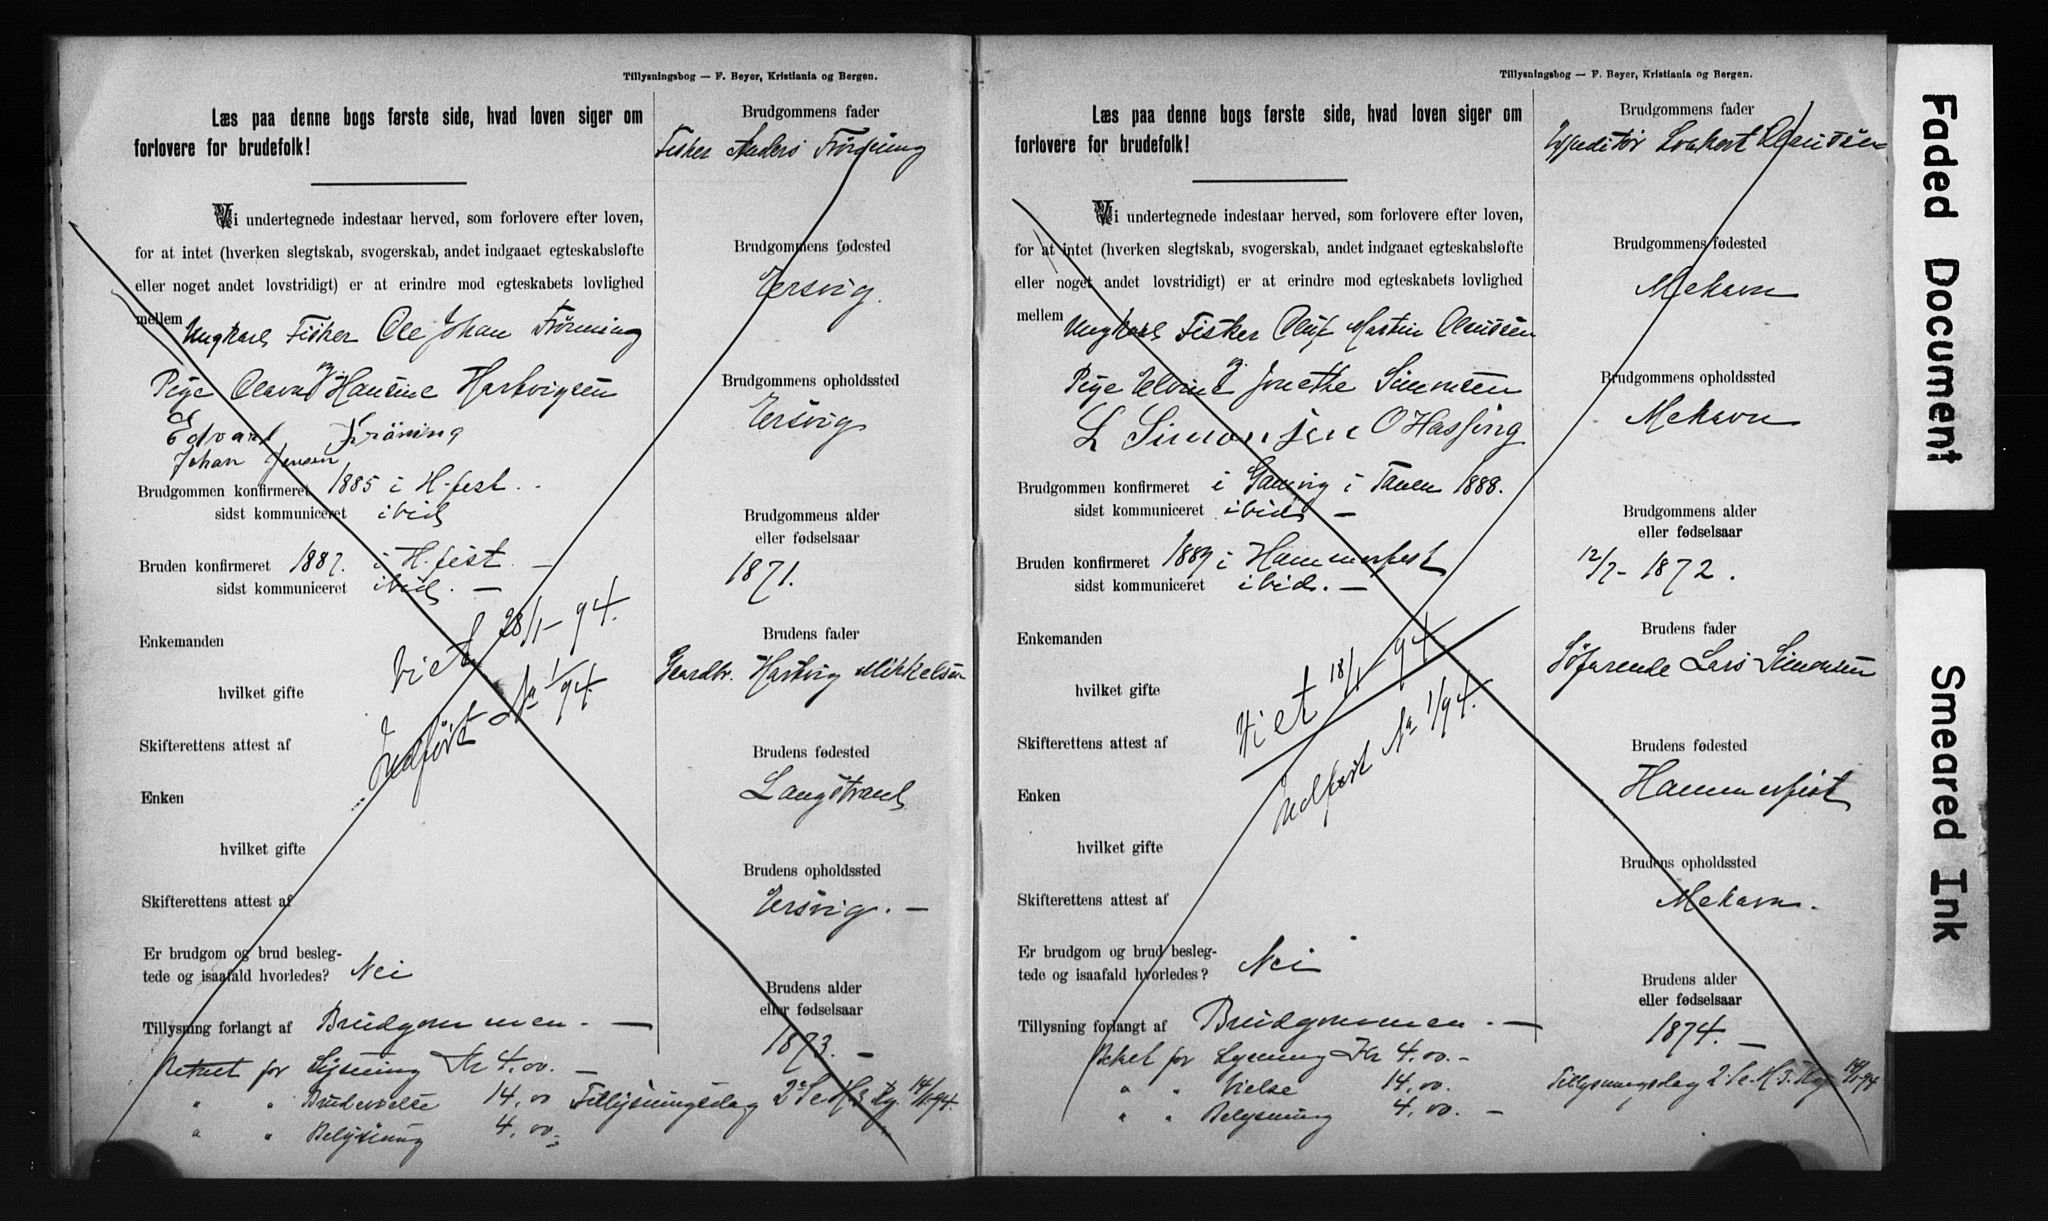 Tillysningsbog — F. Beyer, Kristiania og Bergen.
Læs paa denne bogs første side, hvad loven siger om
forlovere for brudefolk!
Vi undertegnede indestaar herved, som forlovere efter loven,
for at intet (hverken slegtskab, svogerskab, andet indgaaet egteskabsløfte
eller noget andet lovstridigt) er at erindre mod egteskabets lovlighed
mellem
Ungkarl Fisker Ole Johan
og
Pige Hansine Hartvigsen
Edvard
Johan Jensen
Brudgommen konfirmeret 1885 i H.fest
sidst kommuniceret ibid
Bruden konfirmeret 1887. i H.fest. —
sidst kommuniceret ibid. —
Enkemanden
hvilket gifte
Viet 28/1 - 94.
Indført Na 1/94.
Skifterettens attest af
Enken
hvilket gifte
Skifterettens attest af
Er brudgom og brud besleg-
tede og isaafald hvorledes? Nei
Tillysning forlangt af Brudgommen. —
for Lysning Kr 4.00. —
" " Brudevielse 14.00 Tillysningsdag
" " Belysning 4.00
Brudgommens fader
Fisker Anders
Brudgommens fødested
Ersvig.
Brudgommens opholdssted
Ersvig
Brudgommens alder
eller fødselsaar
1871.
Brudens fader
Gaardbr. Hartvig Mikkelsen
Brudens fødested
Langstrand
Brudens opholdssted
Ersvig. —
Brudens alder
eller fødselsaar
1873. —
14/1-94.
Tillysningsbog — F. Beyer, Kristiania og Bergen.
Læs paa denne bogs første side, hvad loven siger om
forlovere for brudefolk!
Vi undertegnede indestaar herved, som forlovere efter loven,
for at intet (hverken slegtskab, svogerskab, andet indgaaet egteskabsløfte
eller noget andet lovstridigt) er at erindre mod egteskabets lovlighed
mellem
Ungkarl Fisker Oluf Martin Claussen
og
Pige Jonethe Simonsen
L Simonsen O Hassing
Brudgommen konfirmeret i Gamvig i Tanen 1888.
sidst kommuniceret ibid —
Bruden konfirmeret 1889 i Hammerfest
sidst kommuniceret ibid. —
Enkemanden
hvilket gifte
Viet 18/1 - 94
Indført Na 1/94.
Skifterettens attest af
Enken
hvilket gifte
Skifterettens attest af
Er brudgom og brud besleg-
tede og isaafald hvorledes? Nei
Tillysning forlangt af Brudgommen. —
for Lysning Kr 4.00. —
" " Vielse 14.00.
" " Belysning 4.00. —
Brudgommens fader
Expeditør Claussen
Brudgommens fødested
Mehavn
Brudgommens opholdssted
Mehavn
Brudgommens alder
eller fødselsaar
12/7 - 1872.
Brudens fader
Søfarende Lars Simonsen
Brudens fødested
Hammerfest
Brudens opholdssted
Mehavn.
Brudens alder
eller fødselsaar
1874. —
Tillysningsdag 14/1-94
Faded Document
Smeared Ink